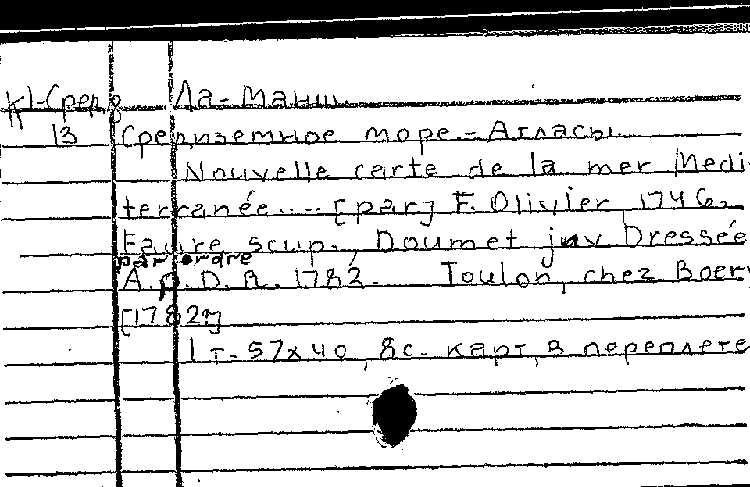 К1-Сред. 8 Ла-Манш.
13 Средиземное море - Атласы.
Nouvelle carte de la mer Medi
terranée.... [par] F. Olivier 1746.
Faure scup., Doumet jnv Dressée
par ordre
A. D. D. R. 1782. Toulon, chez Boery
[1782?]
1 т. 57x40, 8с. карт, в переплете